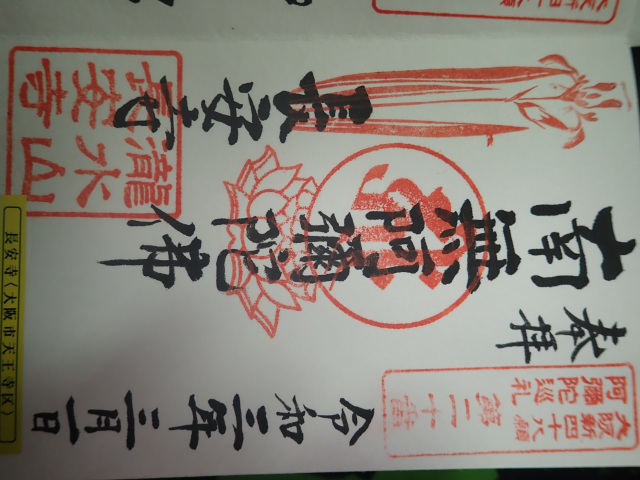 大阪新四十八願
阿彌陀巡礼
第二十番
奉拝
南無阿彌陀佛
長安寺
瀧水山
長安寺
令和三年三月一日
長安寺〈大阪市天王寺区〉